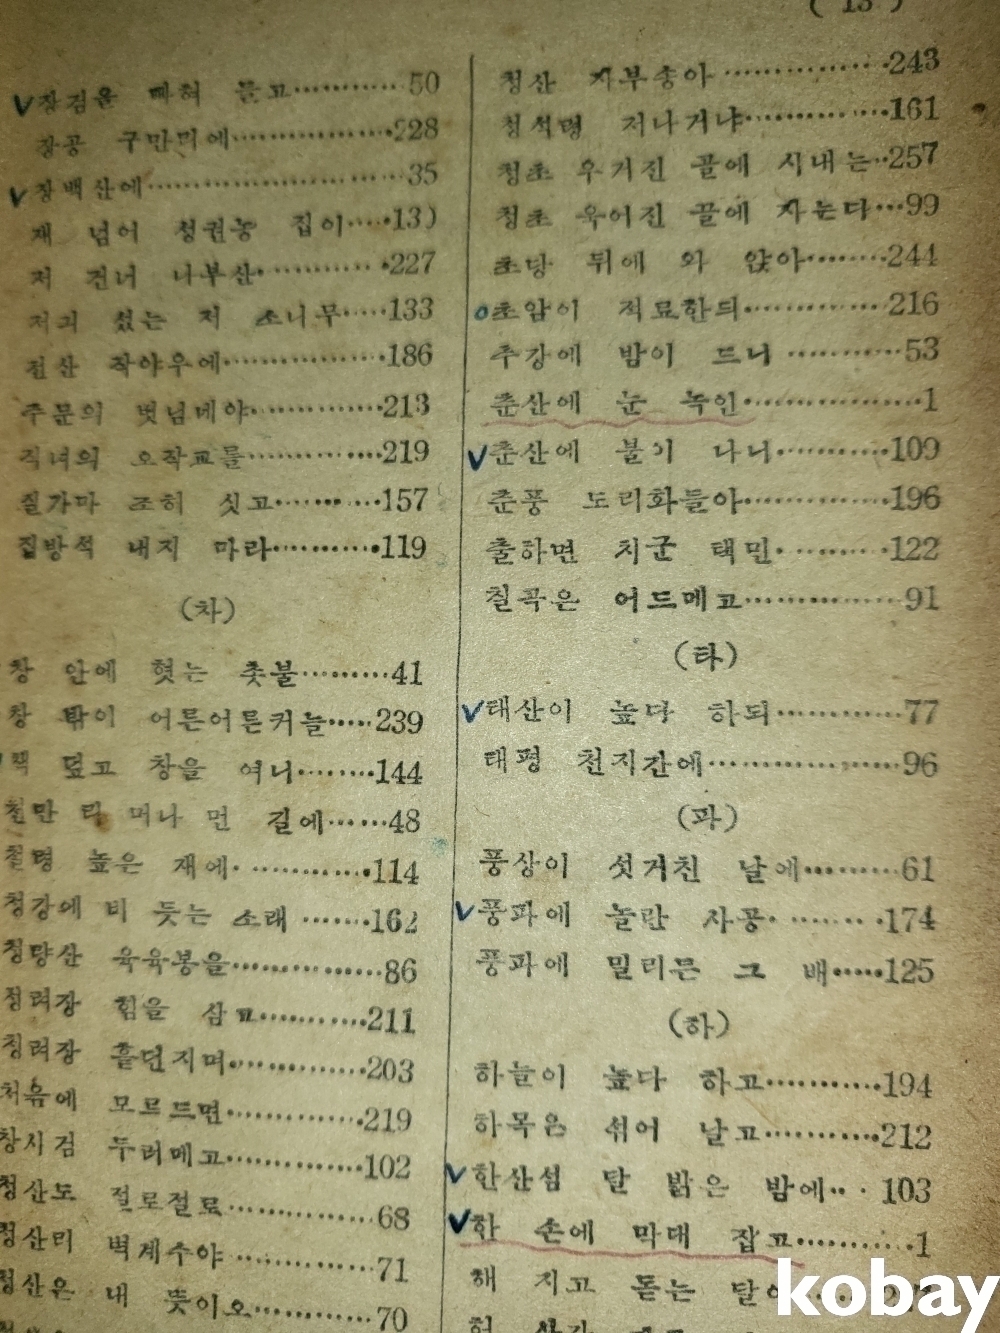 ( 13 )
V장검을 빠혀 들고 50
장공 구만리에 228
V장백산에 35
재 넘어 성권농 집이 13)
저 건너 나부산 227
저긔 섰는 저 소나무 133
전산 작야우에 186
주문의 벗님네야 213
직녀의 오작교를 219
질가마 조히 싯고 157
짚방석 내지 마라 119
(차)
창 안에 혓는 촛불 41
창 밖이 어른어른커늘 239
책 덮고 창을 여니 144
천만 리 머나 먼 길에 48
철령 높은 재에 114
청강에 비 듯는 소래 162
청량산 육육봉을 86
청려장 힘을 삼고 211
청려장 흩던지며 203
처음에 모르드면 219
장시검 두러메고 102
청산도 절로절로 68
청산리 벽계수야 71
청산은 내 뜻이오 70
청산 자부송아 243
청석령 지나거냐 161
청초 우거진 골에 시내는 257
청초 욱어진 골에 자는다 99
초당 뒤에 와 앉아 244
초암이 적료한듸 216
추강에 밤이 드니 53
춘산에 눈 녹인 1
V춘산에 불이 나니 109
춘풍 도리화들아 196
출하면 치군 택민 122
칠곡은 어드메고 91
(타)
V태산이 높다 하되 77
태평 천지간에 96
(파)
풍상이 섯거친 날에 61
V풍파에 놀란 사공 174
풍파에 밀리든 그 배 125
(하)
하늘이 높다 하고 194
하목은 섞어 날고 212
V한산섬 달 밝은 밤에 103
V한 손에 막대 잡고 1
해 지고 돋는 달
kobay